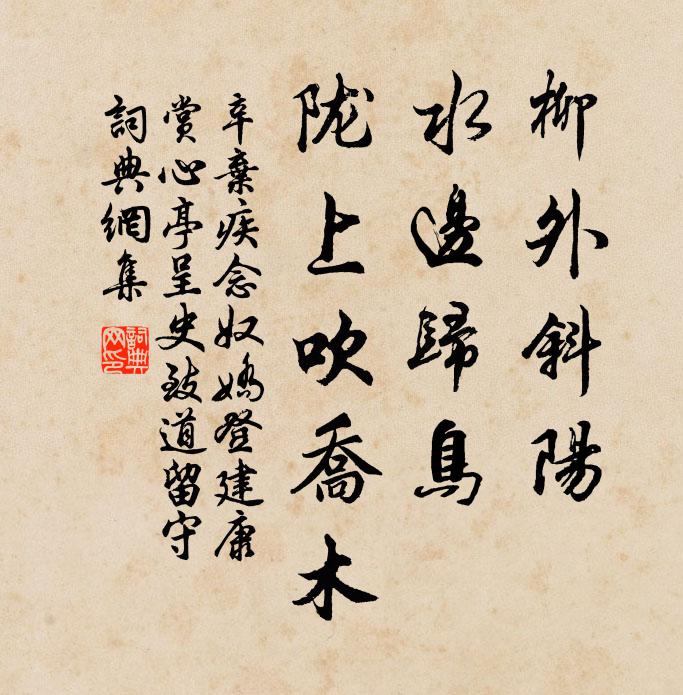 柳外斜陽
水邊歸鳥
陇上吹喬木
辛棄疾念奴嬌登建康
賞心亭呈史致道留守
詞典網集
詞典
网印